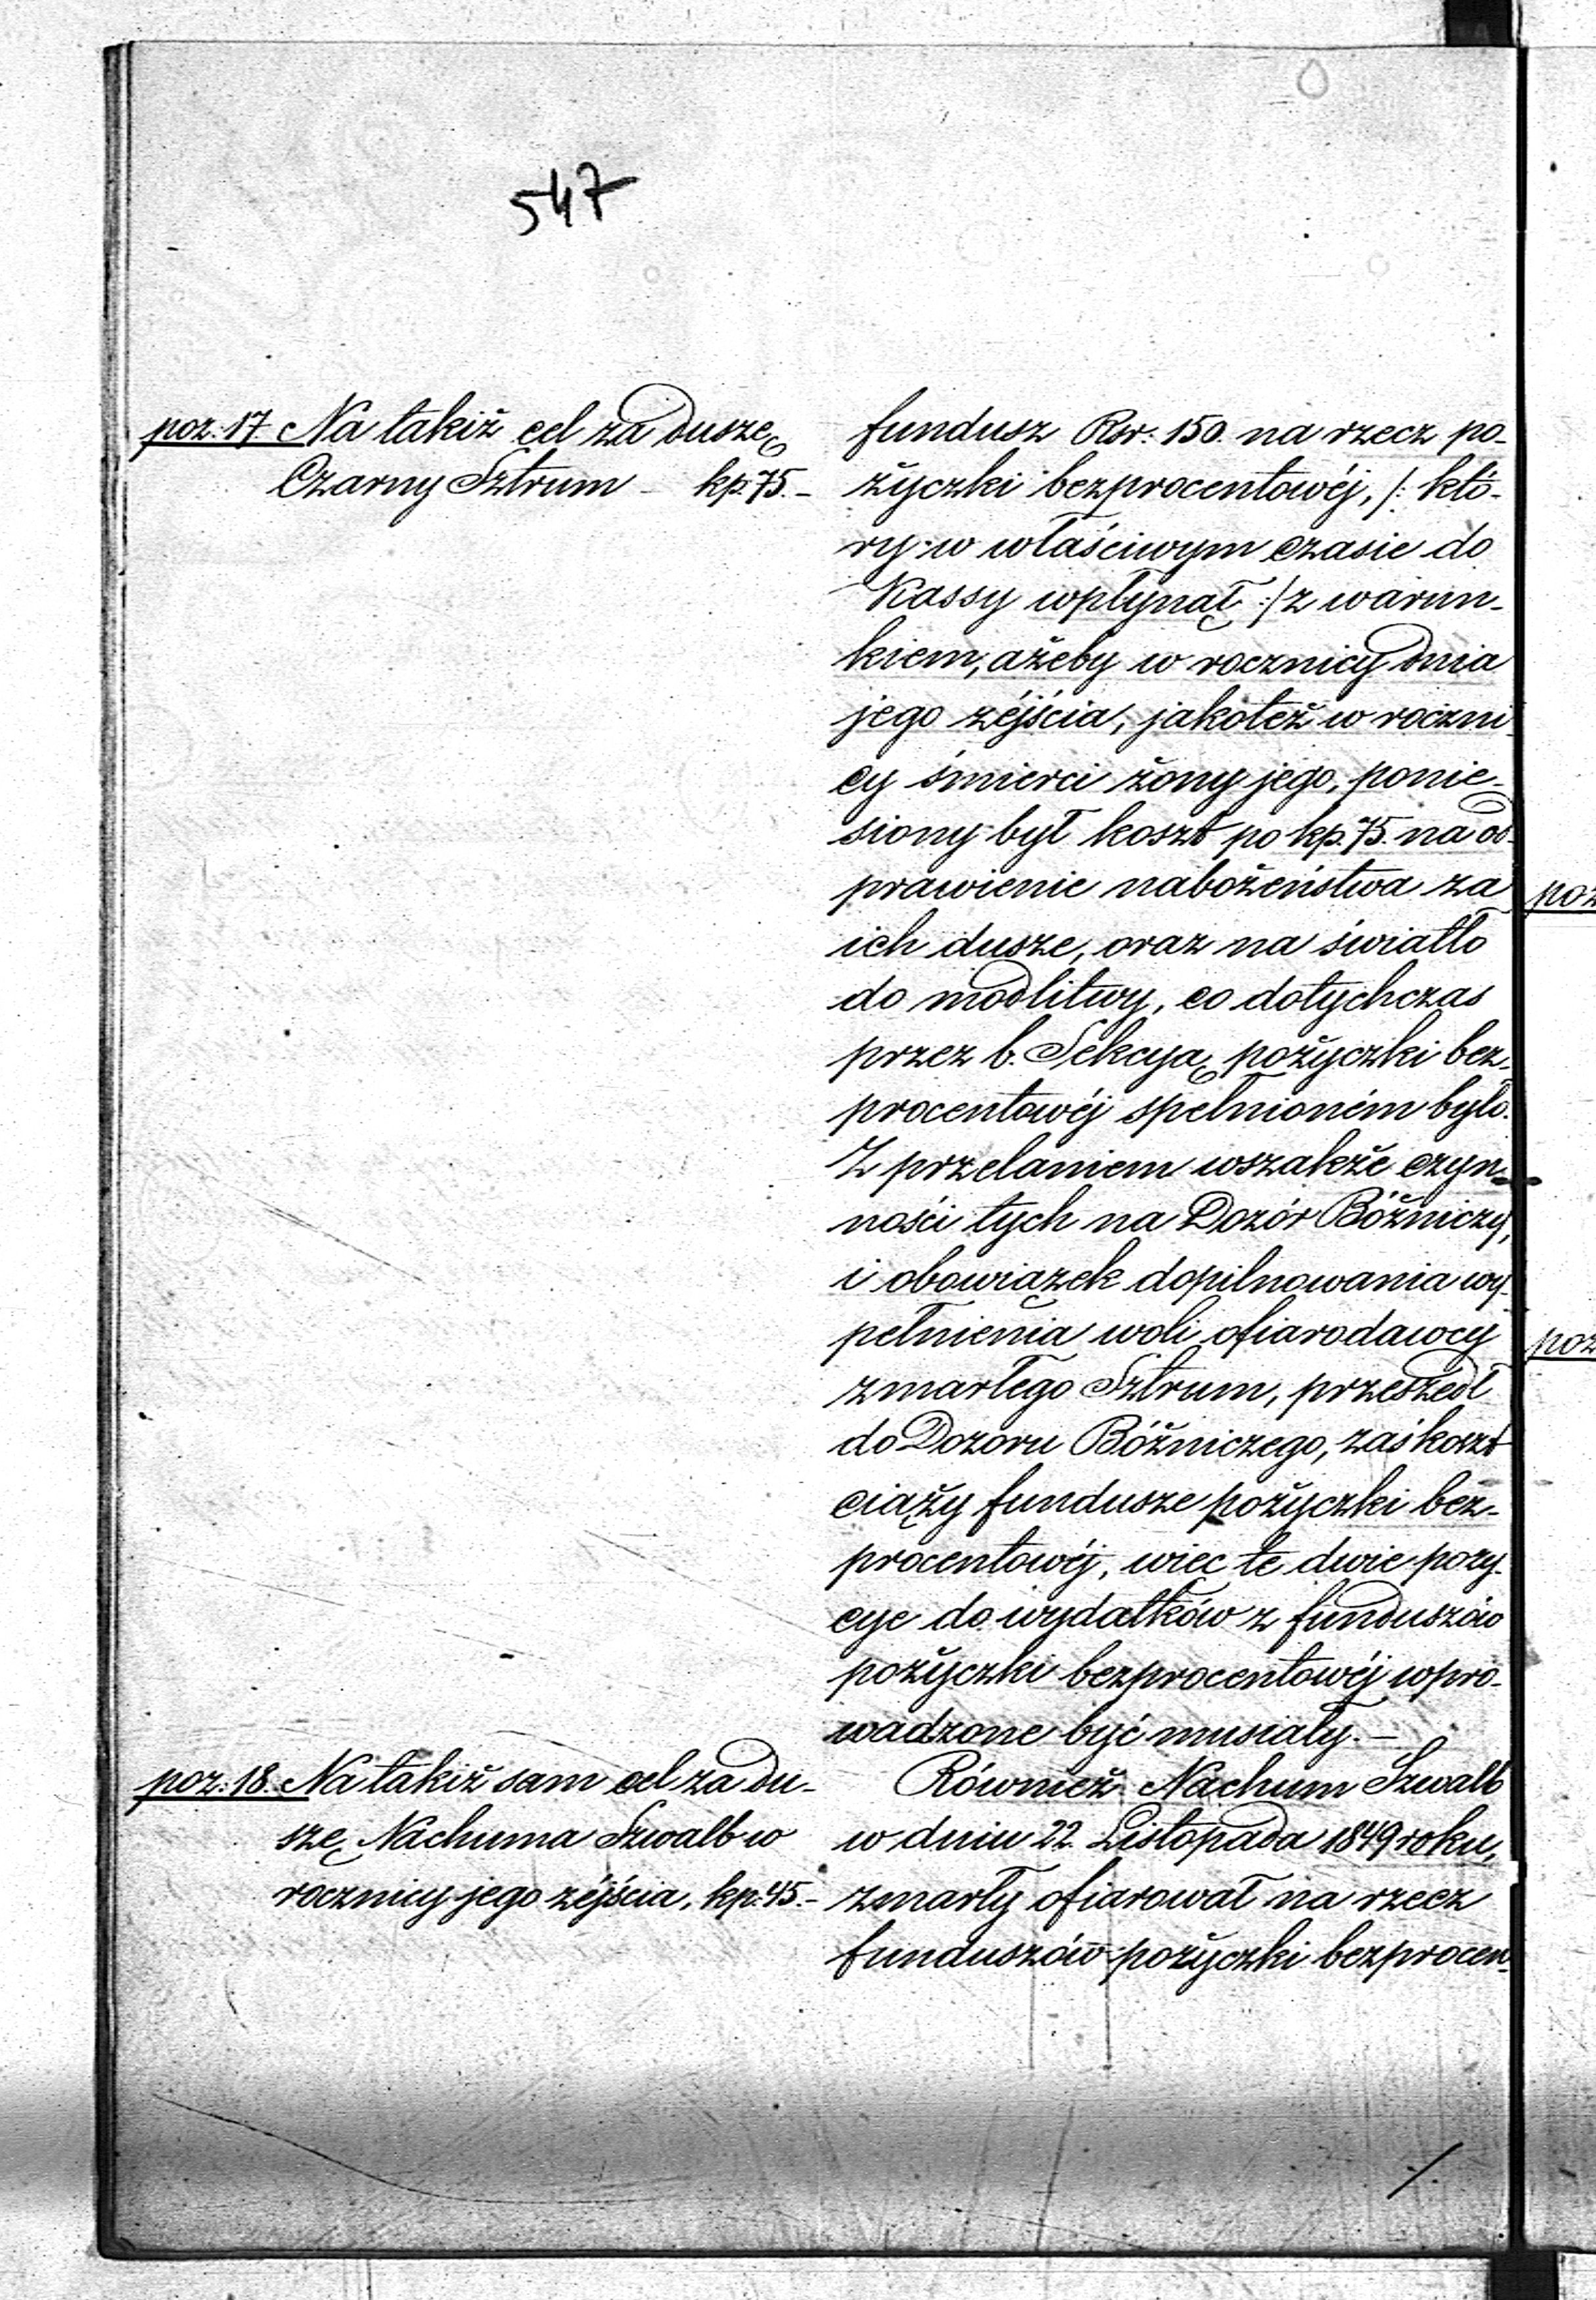 547
poz: 17. Na takiż cel za duszę
Czarny Sztrum – kp. 75. –
fundusz Rsr: 150. na rzecz po-
życzki bezprocentowéj, /: któ-
ry w właściwym czasie do
Kassy wpłynął :/ z warun-
kiem, ażeby w rocznicy dnia
jego zéjścia, jakotéż w roczni-
cy śmierci żony jego, ponie-
siony był koszt po kp. 75. na od-
prawienie nabożeństwa za
ich dusze, oraz na światło
do modlitwy, co dotychczas
przez b. Sekcyą pożyczki bez-
procentowéj spełnioném było.
Z przelaniem wszakże czyn-
ności tych na Dozór Bóżniczy,
i obowiązek dopilnowania wy-
pełnienia woli ofiarodawcy
zmarłego Sztrum, przeszedł
do Dozoru Bóżniczego, zaś koszt
ciąży fundusze pożyczki bez-
procentowéj, więc te dwie pozy-
cye do wydatków z funduszów
pożyczki bezprocentowéj wpro-
wadzone być musiały. –
poz: 18. Na takiż sam cel za du-
szę Nachuma Szwalb w
rocznicy jego zéjścia, kp: 45. –
Również Nachum Szwalb
w dniu 22 Listopada 1849 roku,
zmarły ofiarował na rzecz
funduszów pożyczki bezprocen-
./.
poz
poz